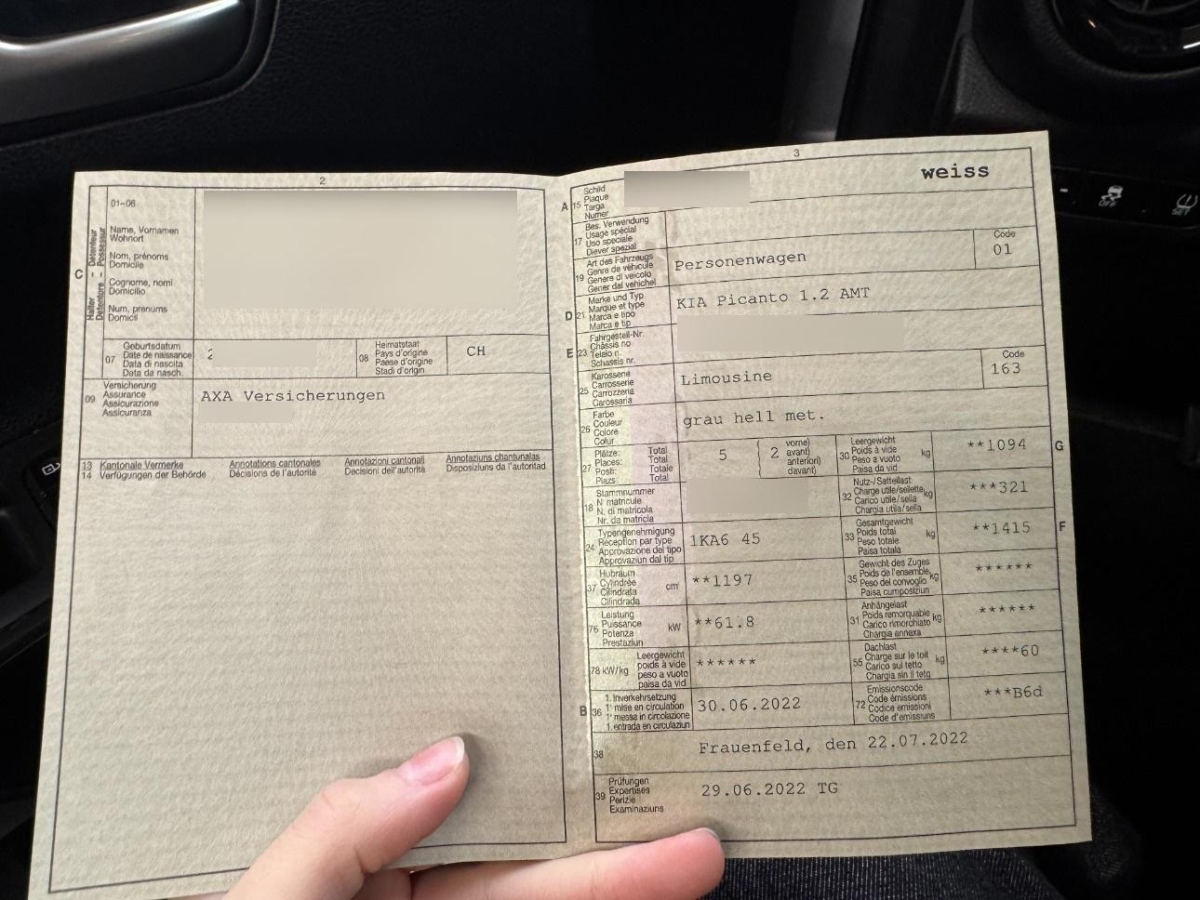 2
01-06
Name, Vornamen
Wohnort
Nom, prénoms
Domicile
Cognome, nomi
Domicilio
Num, prenums
Domicil
C
Halter - Détenteur
Detentore - Possessur
07
Geburtsdatum
Date de naissance
Data di nascita
Data da nasch.
2
08
Heimatstaat
Pays d'origine
Paese d'origine
Stadi d'origin
CH
09
Versicherung
Assurance
Assicurazione
Assicuranza
AXA Versicherungen
13 Kantonale Vermerke
14 Verfügungen der Behörde
Annotations cantonales
Décisions de l'autorité
Annotazioni cantonali
Decisioni dell'autorità
Annotaziuns chantunalas
Disposiziuns da l'autoritad
3
A
15
Schild
Plaque
Targa
Numer
weiss
17
Bes. Verwendung
Usage spécial
Uso speciale
Diever spezial
19
Art des Fahrzeugs
Genre de véhicule
Genere di veicolo
Gener dal vehichel
Personenwagen
Code
01
D
21
Marke und Typ
Marque et type
Marca e tipo
Marca e tip
KIA Picanto 1.2 AMT
E
23
Fahrgestell-Nr.
Châssis no
Telaio n.
Schassis nr.
25
Karosserie
Carrosserie
Carrozzeria
Carossaria
Limousine
Code
163
26
Farbe
Couleur
Colore
Colur
grau hell met.
27
Plätze: Total
Places: Total
Posti: Totale
Plazs: Total
5
2
vorne)
avant)
anteriori)
davant)
30
Leergewicht
Poids à vide
Peso a vuoto
Paisa da vid
kg
**1094
G
18
Stammnummer
N matricule
N. di matricola
Nr. da matricla
32
Nutz-/Sattellast
Charge utile/sellette
Carico utile/sella
Chargia utila/sella
kg
***321
24
Typengenehmigung
Réception par type
Approvazione del tipo
Approvaziun dal tip
1KA6 45
33
Gesamtgewicht
Poids total
Peso totale
Paisa totala
kg
**1415
F
37
Hubraum
Cylindrée
Cilindrata
Cilindrada
cm³
**1197
35
Gewicht des Zuges
Poids de l'ensemble
Peso del convoglio
Paisa cumposiziun
kg
******
76
Leistung
Puissance
Potenza
Prestaziun
kW
**61.8
31
Anhängelast
Poids remorquable
Carico rimorchiato
Chargia annexa
kg
******
78 kW/kg
Leergewicht
poids à vide
peso a vuoto
paisa da vid
******
55
Dachlast
Charge sur le toit
Carico sul tetto
Chargia sin il tetg
kg
****60
B
36
1. Inverkehrsetzung
1ʳᵉ mise en circulation
1ᵃ messa in circolazione
1. entrada en circulaziun
30.06.2022
72
Emissionscode
Code émissions
Codice emissioni
Code d'emissiuns
***B6d
38
Frauenfeld, den 22.07.2022
39
Prüfungen
Expertises
Perizie
Examinaziuns
29.06.2022 TG
OFF
SET